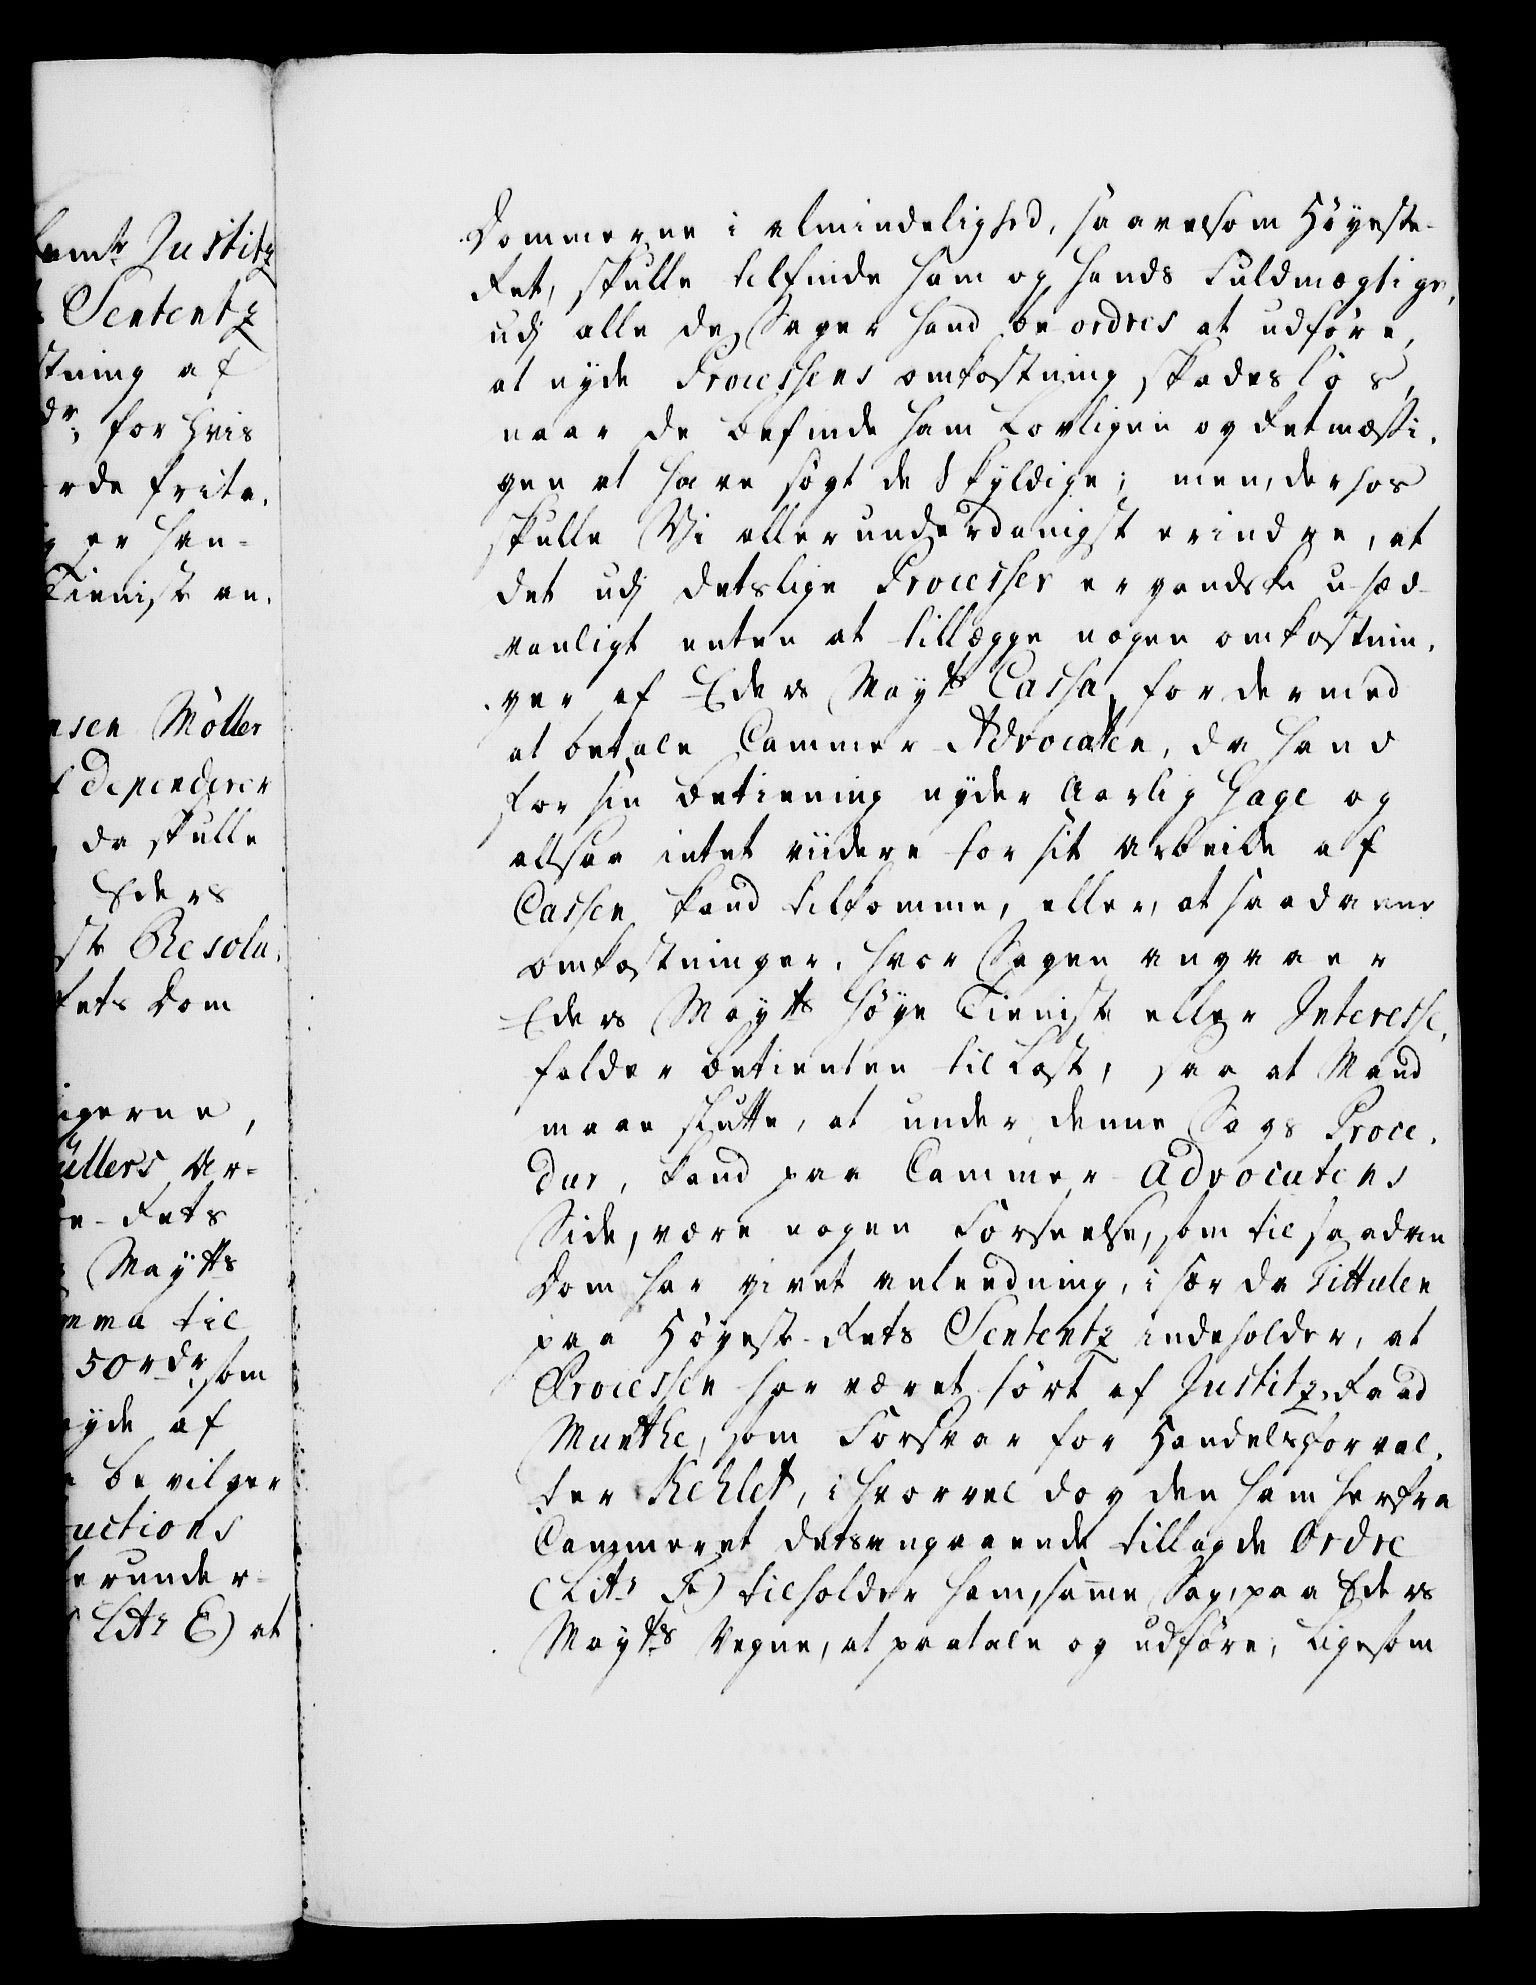 bemte Justitz
Sententz
stning af
dr, for hvis
rde frita,
er han-
Tieniste an,
nsen Möller
dependerer
da skulle
Eders
ste Resolu,
Rets Dom
igerne,
üllers Ar-
e-Rets
Maytts
mma til
50 rdr, som
nyde af
bevilger
uctions
lerunder-
Litr E) at
Dommerne i almindelighed, saavelsom Höyeste-
Ret, skulle tilfinde ham og hands Fuldmægtige,
udj alle de Sager hand be ordres at udföre,
at nyde Processens omkostning skadeslös,
naar de befinde ham Lovligen og Retmæssi,
gen at have sögt de Skyldige; men, derhos
skulle Vi allerunderdanigst erindre, at
det udj detslige Processer er gandske u-sæd-
vanligt enten at tillægge nogen omkostnin,
ger af Eders Maytts Cassa, for dermed
at betale Cammer-Advocaten, da hand
for sin Betiening nyder Aarlig Gage og
altsaa intet viidere for sit Arbeide af
Cassen kand tilkomme, eller, at saadanne
omkostninger, hvor Sagen angaaer
Eders Maytts höye Tieniste eller Interesse,
falder Betienten til Last, saa at Mand
maae slutte, at under denne Sags Proce,
dur, kand paa Cammer-Advocatens
Side, være nogen Forseelse, som til saadan
Dom har givet anleedning, i sær da Tittulen
paa Höyeste-Rets Sententz indeholder, at
Processen har været fört af Justitz-Raad
Munthe, som Forsvar for Handelsforval,
ter Kehlet, ihvorvel dog den ham herfra
Cammeret detsangaaende tillagde Ordre
(Litr F) tilholder ham, samme Sag, paa Eders
Maytts Vegne, at paatale og udföre, Ligesom